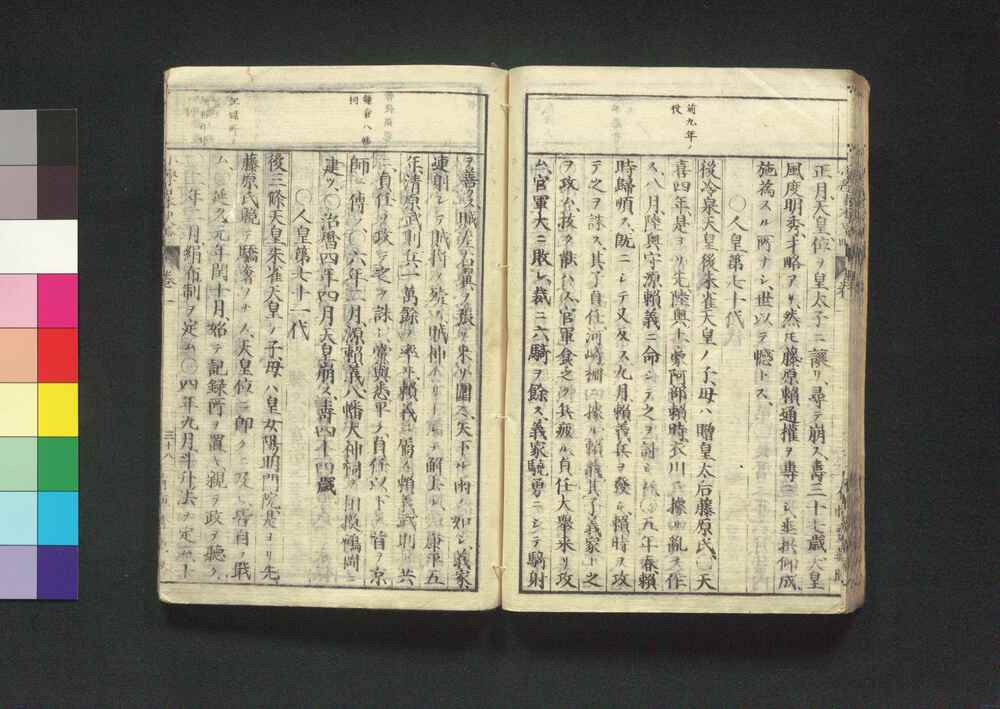 前九年ノ
役
正月、天皇位ヲ皇太子ニ譲リ、尋テ崩ス、壽三十七歳、天皇
風度明秀、才略アリ、然モ藤原頼通權ヲ專ニシ、垂拱仰成
施為スル所ナシ、世以テ憾トス、
〇人皇第七十代
後冷泉天皇後朱雀天皇ノ子、母ハ贈皇太后藤原氏、〇天
喜四年、是ヨリ先陸奥ノ土豪阿部頼時衣川ニ據リ亂ヲ作
ス、八月、陸奥守源頼義ニ命シテ之ヲ討シム、〇五年春、頼
時歸順ス、既ニシテ又反ス、九月、頼義兵ヲ發シ、頼時ヲ攻
テ之ヲ誅ス、其子貞任河崎柵ニ據ル、頼義其子義家ト之
ヲ攻ム、抜ク能ハス、官軍食乏ク兵疲ル、貞任大擧来リ攻
ム、官軍大ニ敗レ、裁ニ六騎ヲ餘ス、義家驍勇ニシテ騎射
鎌倉八幡
祠
ヲ善クス、賊左右翼ヲ張リ来リ圍ム、矢下ル雨ノ如シ、義家
連射シテ賊将ヲ殪ス、賊神ナリト為シテ解去ル、康平五
年、清原武則兵一萬餘ヲ率ヰ、頼義ニ屬ス、頼義武則ト共
ニ貞任ヲ攻テ之ヲ誅シ、
師ニ傳フ、〇六年二月、源頼義八幡大神祠ヲ相撲鶴岡ニ
建ツ、〇治暦四年四月、天皇崩ス、壽四十四歳
〇人皇第七十一代
後三條天皇朱雀天皇ノ子、母ハ皇女陽明門院、是ヨリ先
藤原氏脱テ驕奢ヲナス、天皇位ニ即ク
ム、延久元年閏十月、始テ記録所ヲ置キ、親ラ政ヲ聴ク、
年二月、絹布制ヲ定ム、〇四年九月、斗升法ヲ定ム、ト
巻一
三十八